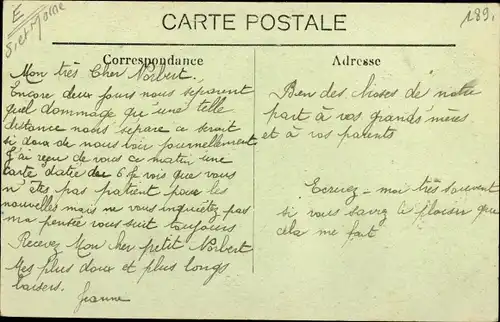 E
S. et Marne
189.
CARTE POSTALE
Correspondance
Adresse
Mon très Cher Norbert.
Encore deux jours nous séparent
quel dommage qu'une telle
distance nous sépare ce serait
si doux de nous voir journellement
J'ai reçu de vous ce matin une
carte datée du 6 je vois que vous
n'êtes pas patient pour les
nouvelles mais ne vous inquiétez pas
ma pensée vous suit toujours
Recevez Mon cher petit Norbert
Mes plus doux et plus longs
baisers.
Jeanne
Bien des bises de notre
part à vos grands'mères
et à vos parents
Ecrivez-moi très souvent
si vous savez le plaisir que
cela me fait